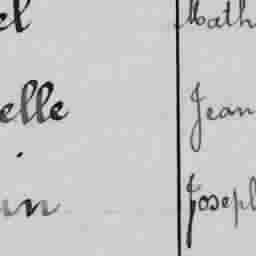 el Math
elle Jean
in Joseph